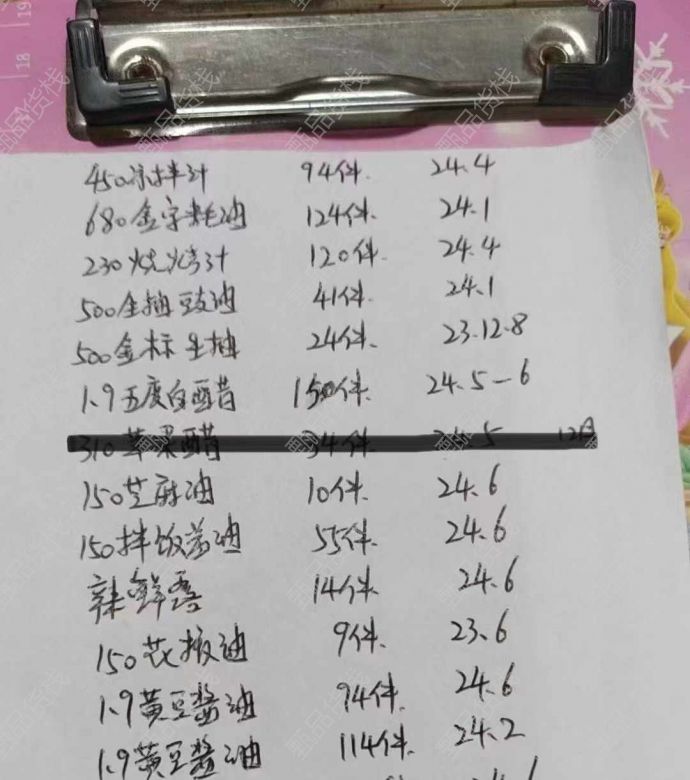 450凉拌汁 94件. 24.4
680金字耗油 124件. 24.1
230烧烤汁 120件. 24.4
500生抽豉油 41件. 24.1
500金标生抽 24件. 23.12.8
1.9五度白醋 150件. 24.5-6
310苹果醋 34件 24.5 12月
150芝麻油 10件. 24.6
150拌饭酱油 55件. 24.6
辣鲜露 14件. 24.6
150花椒油 9件. 23.6
1.9黄豆酱油 94件. 24.6
1.9黄豆酱油 114件. 24.2
甄品货栈